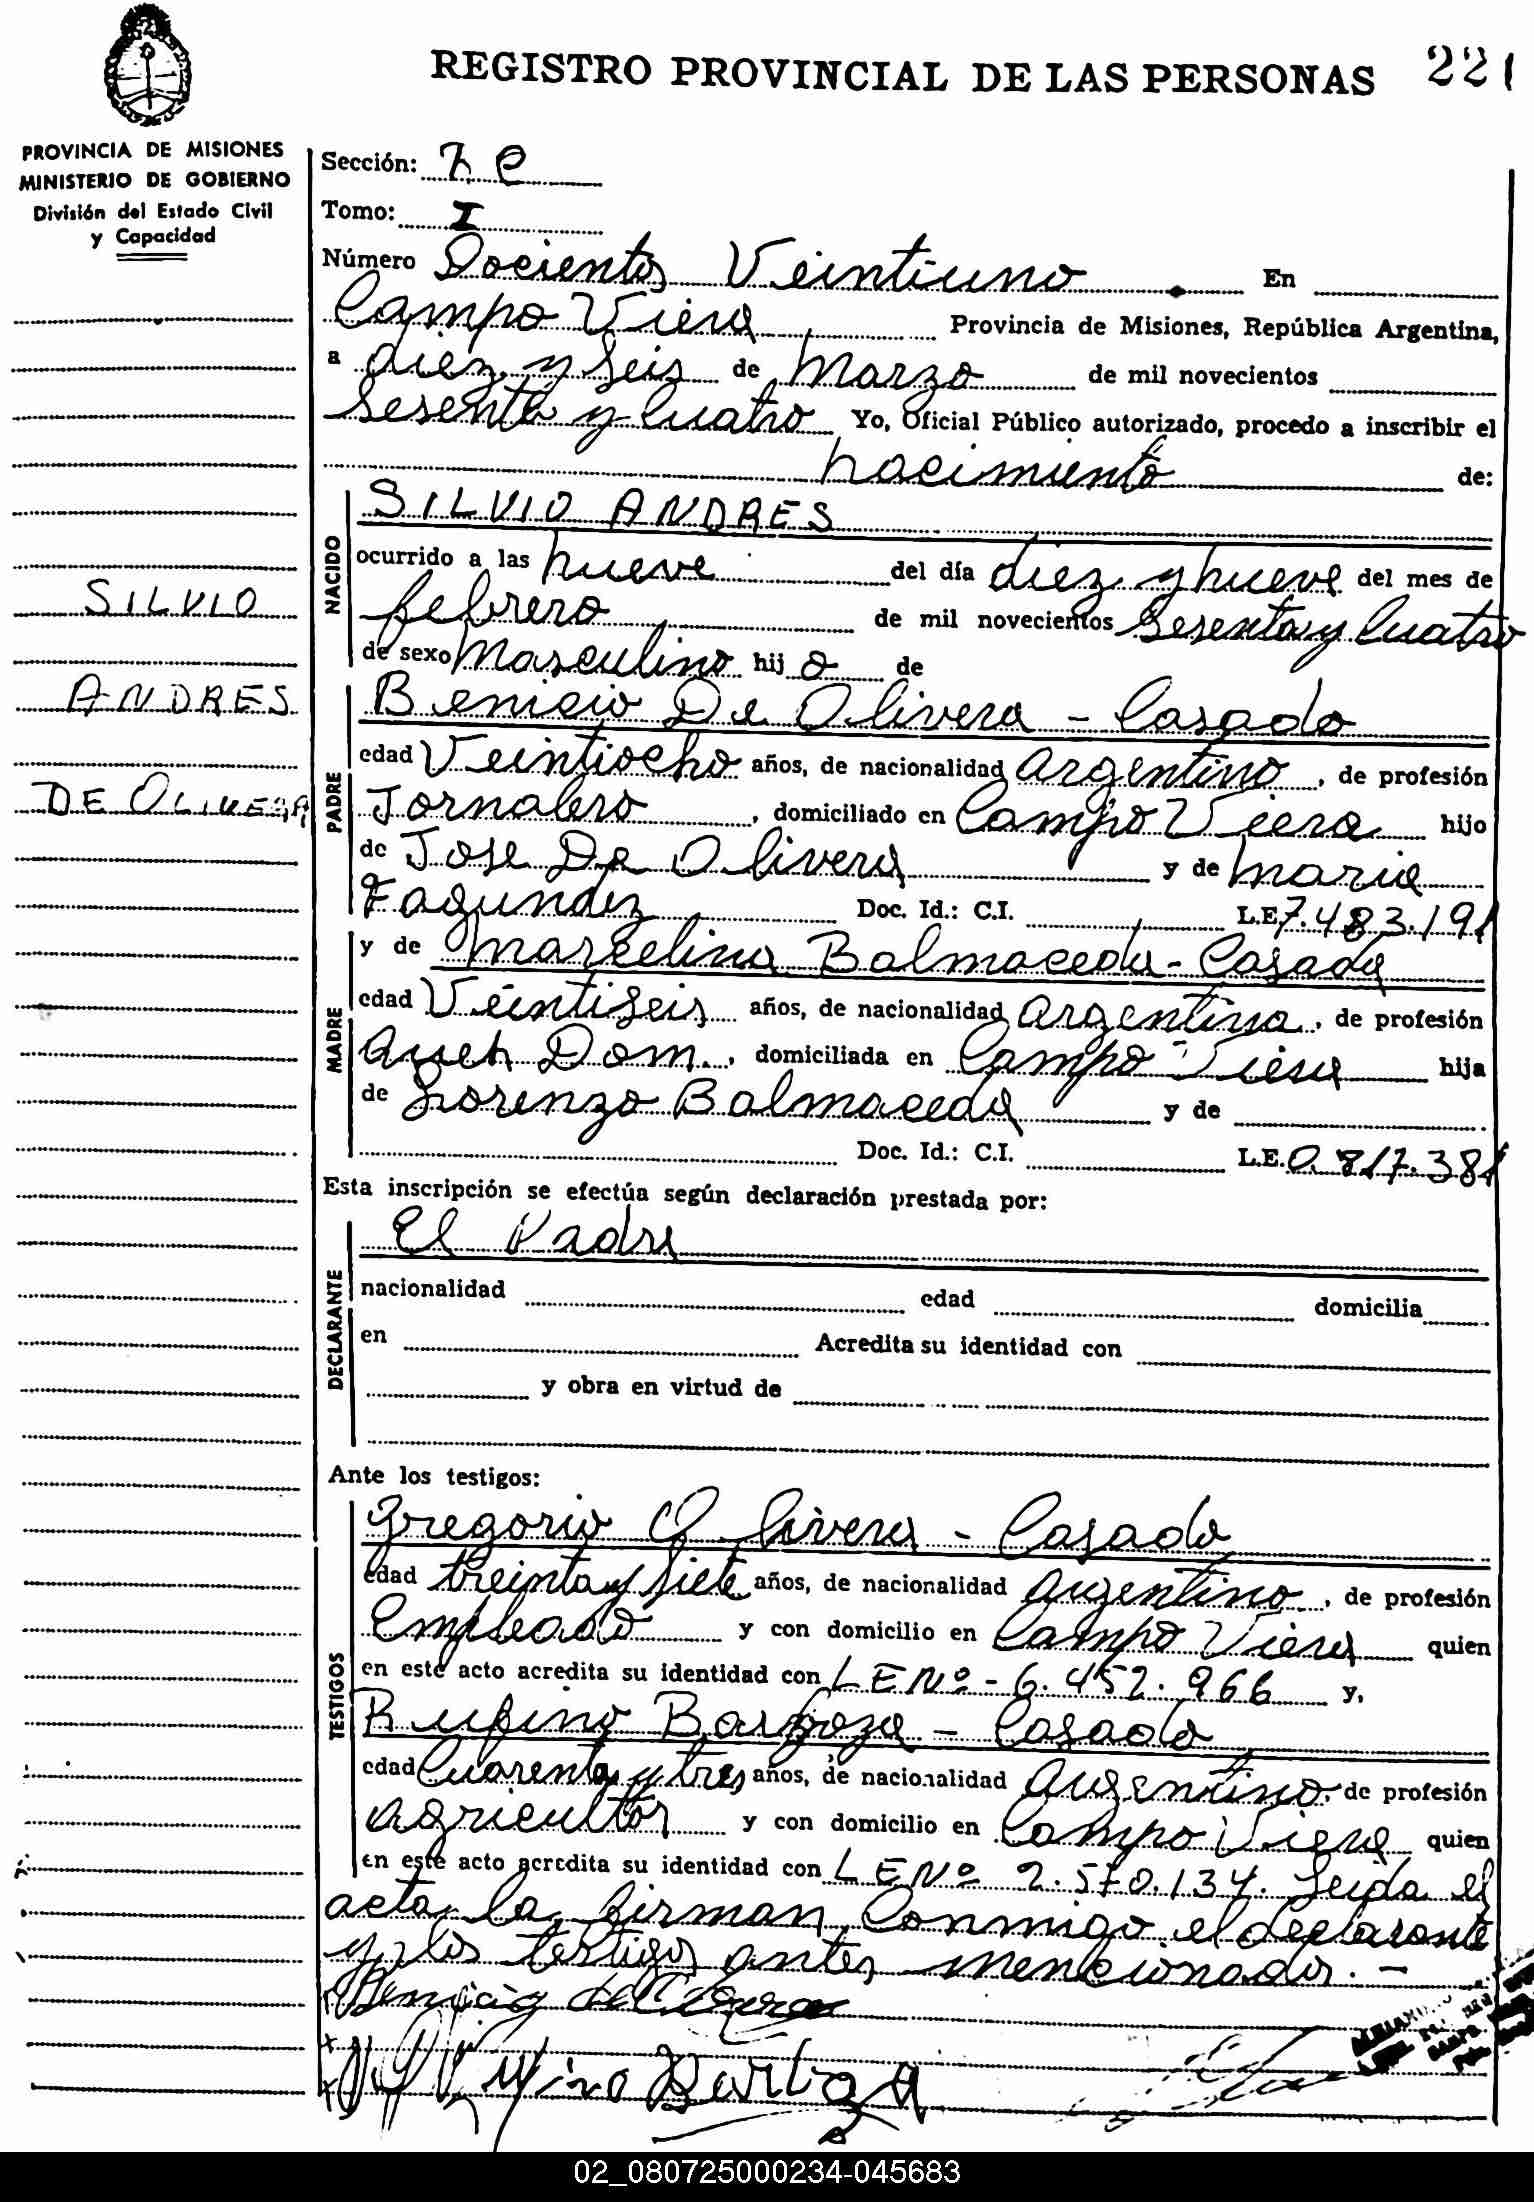 REGISTRO PROVINCIAL DE LAS PERSONAS 221
PROVINCIA DE MISIONES
MINISTERIO DE GOBIERNO
División del Estado Civil
y Capacidad
Sección:
Tomo: I
Número Docientos Veintiuno En
Campo Viera Provincia de Misiones, República Argentina,
a diez y seis de Marzo de mil novecientos
sesenta y cuatro Yo, Oficial Público autorizado, procedo a inscribir el
nacimiento de:
NACIDO
SILVIO ANDRES
ocurrido a las nueve del día diez y nueve del mes de
febrero de mil novecientos sesenta y cuatro
de sexo Masculino hijo de
SILVIO
ANDRES
DE OLIVERA
PADRE
Benicio De Olivera - Casado
edad Veintiocho años, de nacionalidad argentino, de profesión
Jornalero, domiciliado en Campo Viera hijo
de Jose De Olivera y de Maria
Fagundez Doc. Id.: C.I. L.E. 7.483.191
MADRE
y de Marcelina Balmaceda - Casada
edad Veintiseis años, de nacionalidad argentina, de profesión
Dom., domiciliada en Campo Viera hija
de Lorenzo Balmaceda y de
Doc. Id.: C.I. L.E. 0.817.381
Esta inscripción se efectúa según declaración prestada por:
DECLARANTE
El Padre
nacionalidad edad domicilia
en Acredita su identidad con
y obra en virtud de
Ante los testigos:
TESTIGOS
Gregorio Olivera - Casado
edad treinta y siete años, de nacionalidad argentino, de profesión
Empleado y con domicilio en Campo Viera quien
en este acto acredita su identidad con L E Nº - 6.452.966 y,
Rufino Barboza - Casado
edad Cuarenta y tres años, de nacionalidad argentino, de profesión
agricultor y con domicilio en Campo Viera quien
en este acto acredita su identidad con L E Nº 2.570.134. Leida el
acta, la firman conmigo el declarante
y los testigos antes mencionados. -
Benicio de Olivera
Barboza
02_080725000234-045683